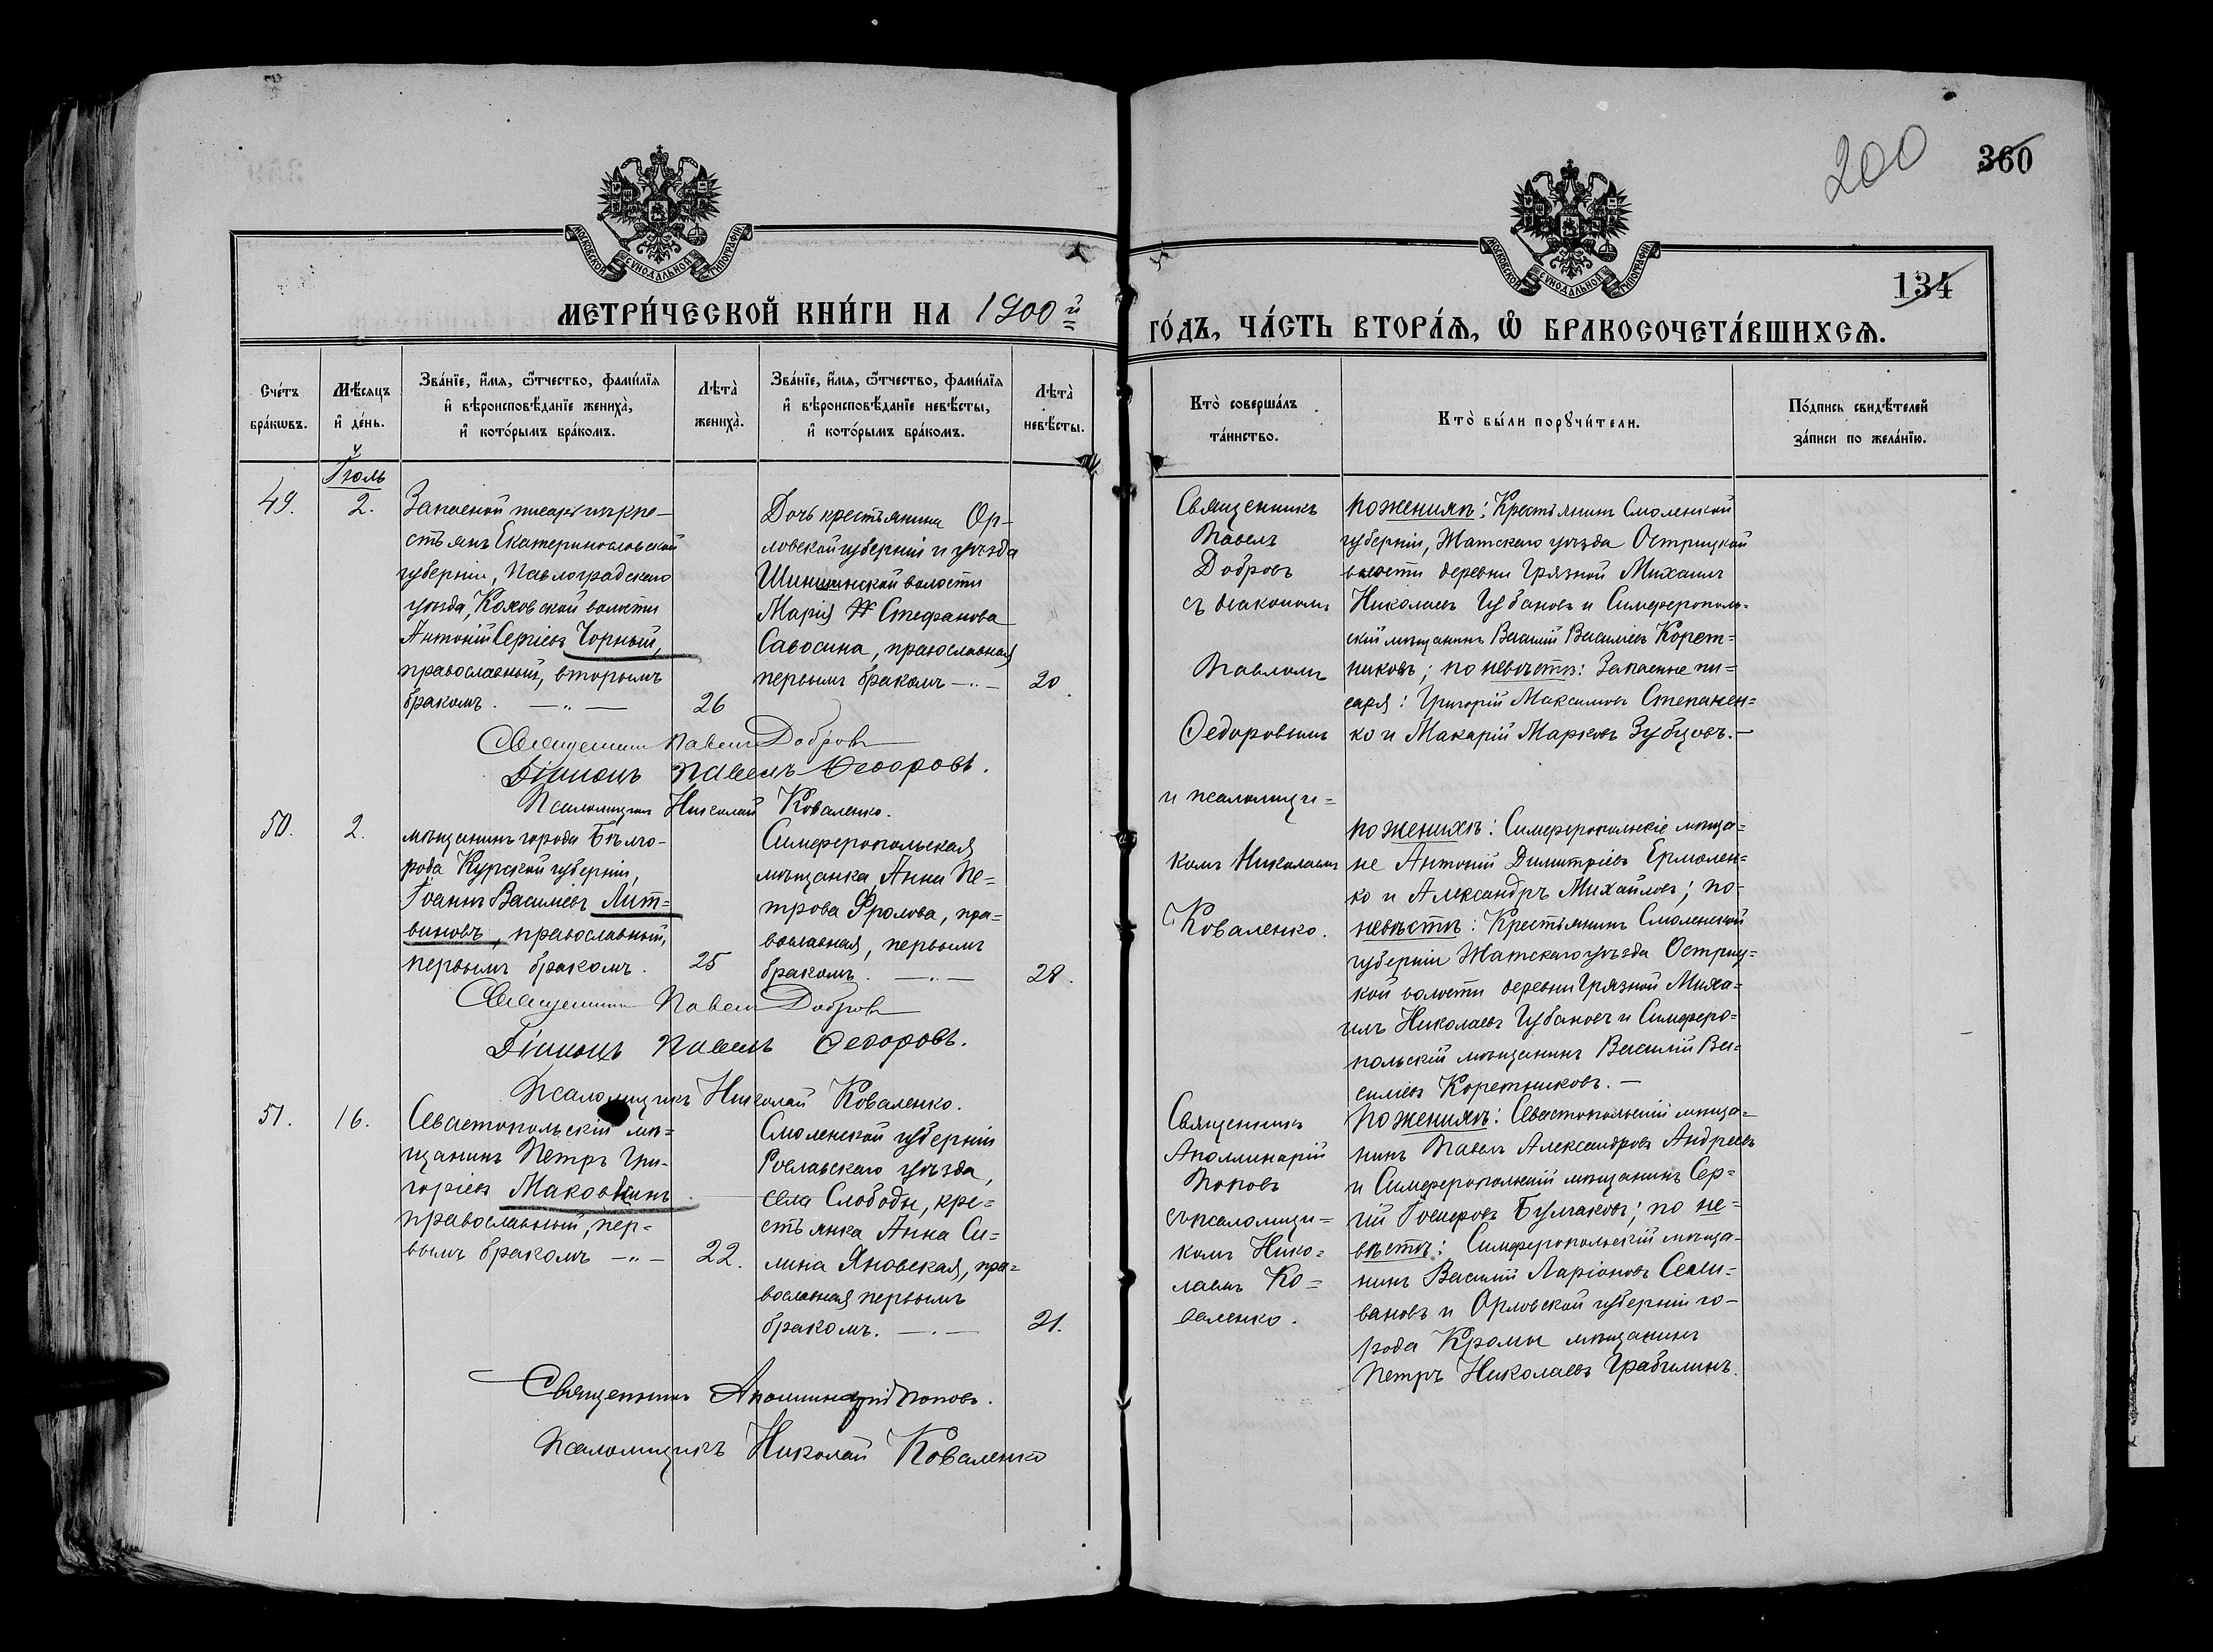 200
360
134
МОСКОВСКОЙ СѴНОДАЛЬНОЙ ТИПОГРАФІИ
МОСКОВСКОЙ СѴНОДАЛЬНОЙ ТИПОГРАФІИ
МЕТРИ́ЧЕСКОЙ КНИ́ГИ НА 1900й
ГО́ДЪ, ЧА́СТЬ ВТОРА́Ѧ, Ѽ БРАКОСОЧЕТА́ВШИХСѦ.
Сче́тъ
бра́кѡвъ.
Мѣ́сяцъ
и҆ де́нь.
Зва́нїе, и҆́мя, ѻ҆́тчество, фами́лїя
и҆ вѣроисповѣ́данїе жениха̀,
и҆ кото́рымъ бра́комъ.
Лѣта̀
жениха̀.
Зва́нїе, и҆́мя, ѻ҆́тчество, фами́лїя
и҆ вѣроисповѣ́данїе невѣ́сты,
и҆ кото́рымъ бра́комъ.
Лѣта̀
невѣ́сты.
Кто̀ соверша́лъ
та́инство.
Кто̀ бы́ли порꙋчи́тели.
По́дпись свидѣ́телей
за́писи по жела́нїю.
Іюль
49.
2.
Запасной писарь изъ кре-
стьянъ Екатеринославской
губерніи, Павлоградскаго
уѣзда, Коховской волости
Антоній Сергіевъ Чорный,
православный, вторымъ
бракомъ. — „ —
26
Дочь крестьянина Ор-
ловской губерніи и уѣзда
волости
Марія Стефанова
Савосина, православная
первымъ бракомъ — „ —
20.
Священникъ Павелъ Добровъ
Діаконъ Павелъ Ѳедоровъ.
Псаломщикъ Николай Коваленко.
Священникъ
Павелъ
Добровъ
съ діакономъ
Павломъ
Ѳедоровымъ
и псаломщи=
комъ Николаемъ
Коваленко.
по женихѣ: Крестьянинъ Смоленской
губерніи, Жатскаго уѣзда Острицкой
волости деревни Грязной Михаилъ
Николаевъ Губановъ и Симферополь-
скій мѣщанинъ Василій Васильевъ Корет=
никовъ; по невѣстѣ: Запасные пи=
саря: Григорій Максимовъ Степанен=
ко и Макарій Марковъ Зубцовъ. —
50.
2.
мѣщанинъ города Бѣлго-
рода Курской губерніи,
Іоаннъ Васильевъ Лит=
виновъ, православный,
первымъ бракомъ.
25
Симферопольская
мѣщанка Анна Пе=
трова Фролова, пра=
вославная, первымъ
бракомъ. — . —
28.
Священникъ Павелъ Добровъ
Діаконъ Павелъ Ѳедоровъ.
Псаломщикъ Николай Коваленко.
по женихѣ: Симферопольскіе мѣща=
не Антоній Димитріевъ Ермолен=
ко и Александръ Михайловъ; по-
невѣстѣ: Крестьянинъ Смоленской
губерніи Жатскаго уѣзда Остриц=
кой волости деревни Грязной Миха=
илъ Николаевъ Губановъ и Симферо=
польскій мѣщанинъ Василій Ва=
сильевъ Коретниковъ. —
51.
16.
Севастопольскій мѣ=
щанинъ Петръ Гри-
горіевъ Маковкинъ
православный, пер-
вымъ бракомъ — „ —
22.
Смоленской губерніи
Рославскаго уѣзда,
села Слободы, кре=
стьянка Анна Си=
лина Яновская, пра=
вославная первымъ
бракомъ. — . —
21.
Священникъ
Аполлинарій
Поповъ
съ псаломщи=
комъ Нико=
лаемъ Ко=
валенко.
по женихѣ: Севастопольскій мѣща-
нинъ Павелъ Александровъ Андреевъ
и Симферопольскій мѣщанинъ Сер=
гій Булгаковъ; по не=
вѣстѣ: Симферопольскій мѣща-
нинъ Василій Ларіоновъ Сели=
вановъ и Орловской губерніи го-
рода Кромы мѣщанинъ
Петръ Николаевъ Грабилинъ.
Священникъ Аполлинарій Поповъ.
Псаломщикъ Николай Коваленко